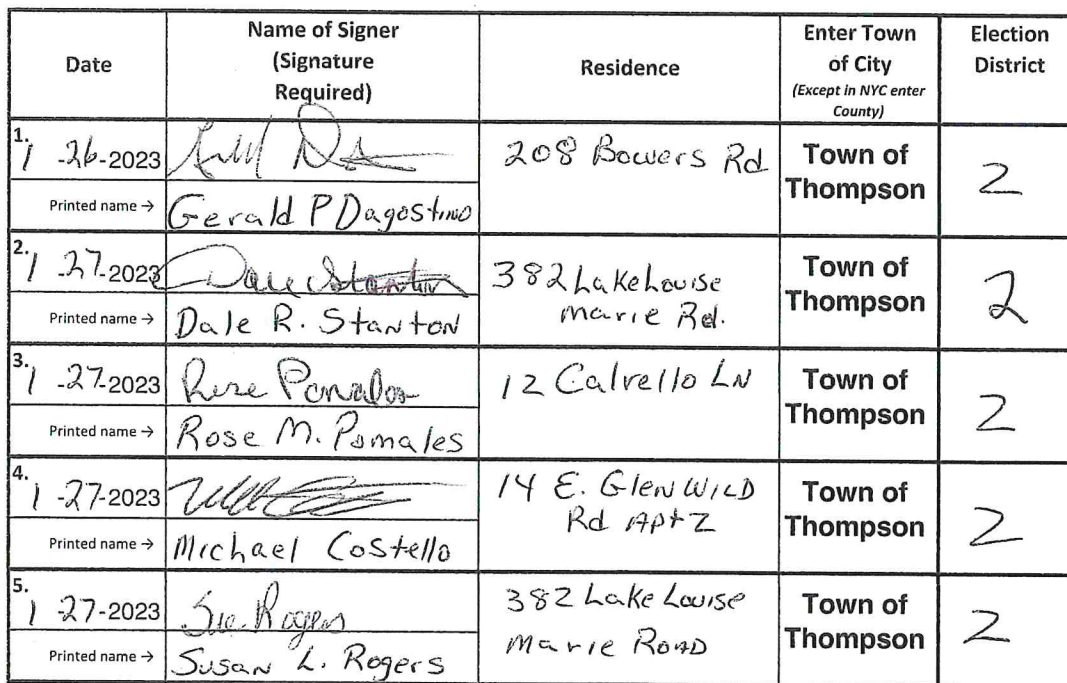 Date
Name of Signer
(Signature
Required)
Residence
Enter Town
of City
(Except in NYC enter
County)
Election
District
1. 1 -26-2023
208 Bowers Rd
Town of
Thompson
2
Printed name → Gerald P Dagostino
2. 1 -27-2023 Dale Stanton
382 Lake Louise
Marie Rd.
Town of
Thompson
2
Printed name → Dale R. Stanton
3. 1 -27-2023 Rose Pomales
12 Calvello LN
Town of
Thompson
2
Printed name → Rose M. Pomales
4. 1 -27-2023
14 E. Glen WILD
Rd APt 2
Town of
Thompson
2
Printed name → Michael Costello
5. 1 -27-2023 Sue Rogers
382 Lake Louise
Marie ROAD
Town of
Thompson
2
Printed name → Susan L. Rogers